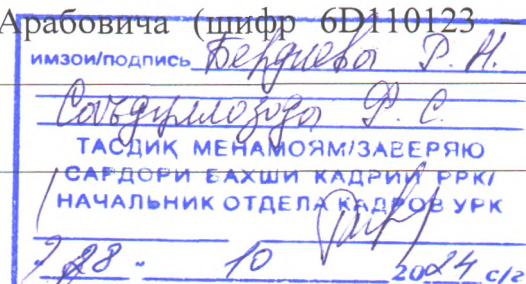 Арабовича (шифр 6D110123 –
имзои/подпись Бердиева Р. Н.
Саъдуллозода Ф. С.
ТАСДИҚ МЕНАМОЯМ/ЗАВЕРЯЮ
САРДОРИ БАХШИ КАДРИИ РРК/
НАЧАЛЬНИК ОТДЕЛА КАДРОВ УРК
"28" 10 2024 с/г